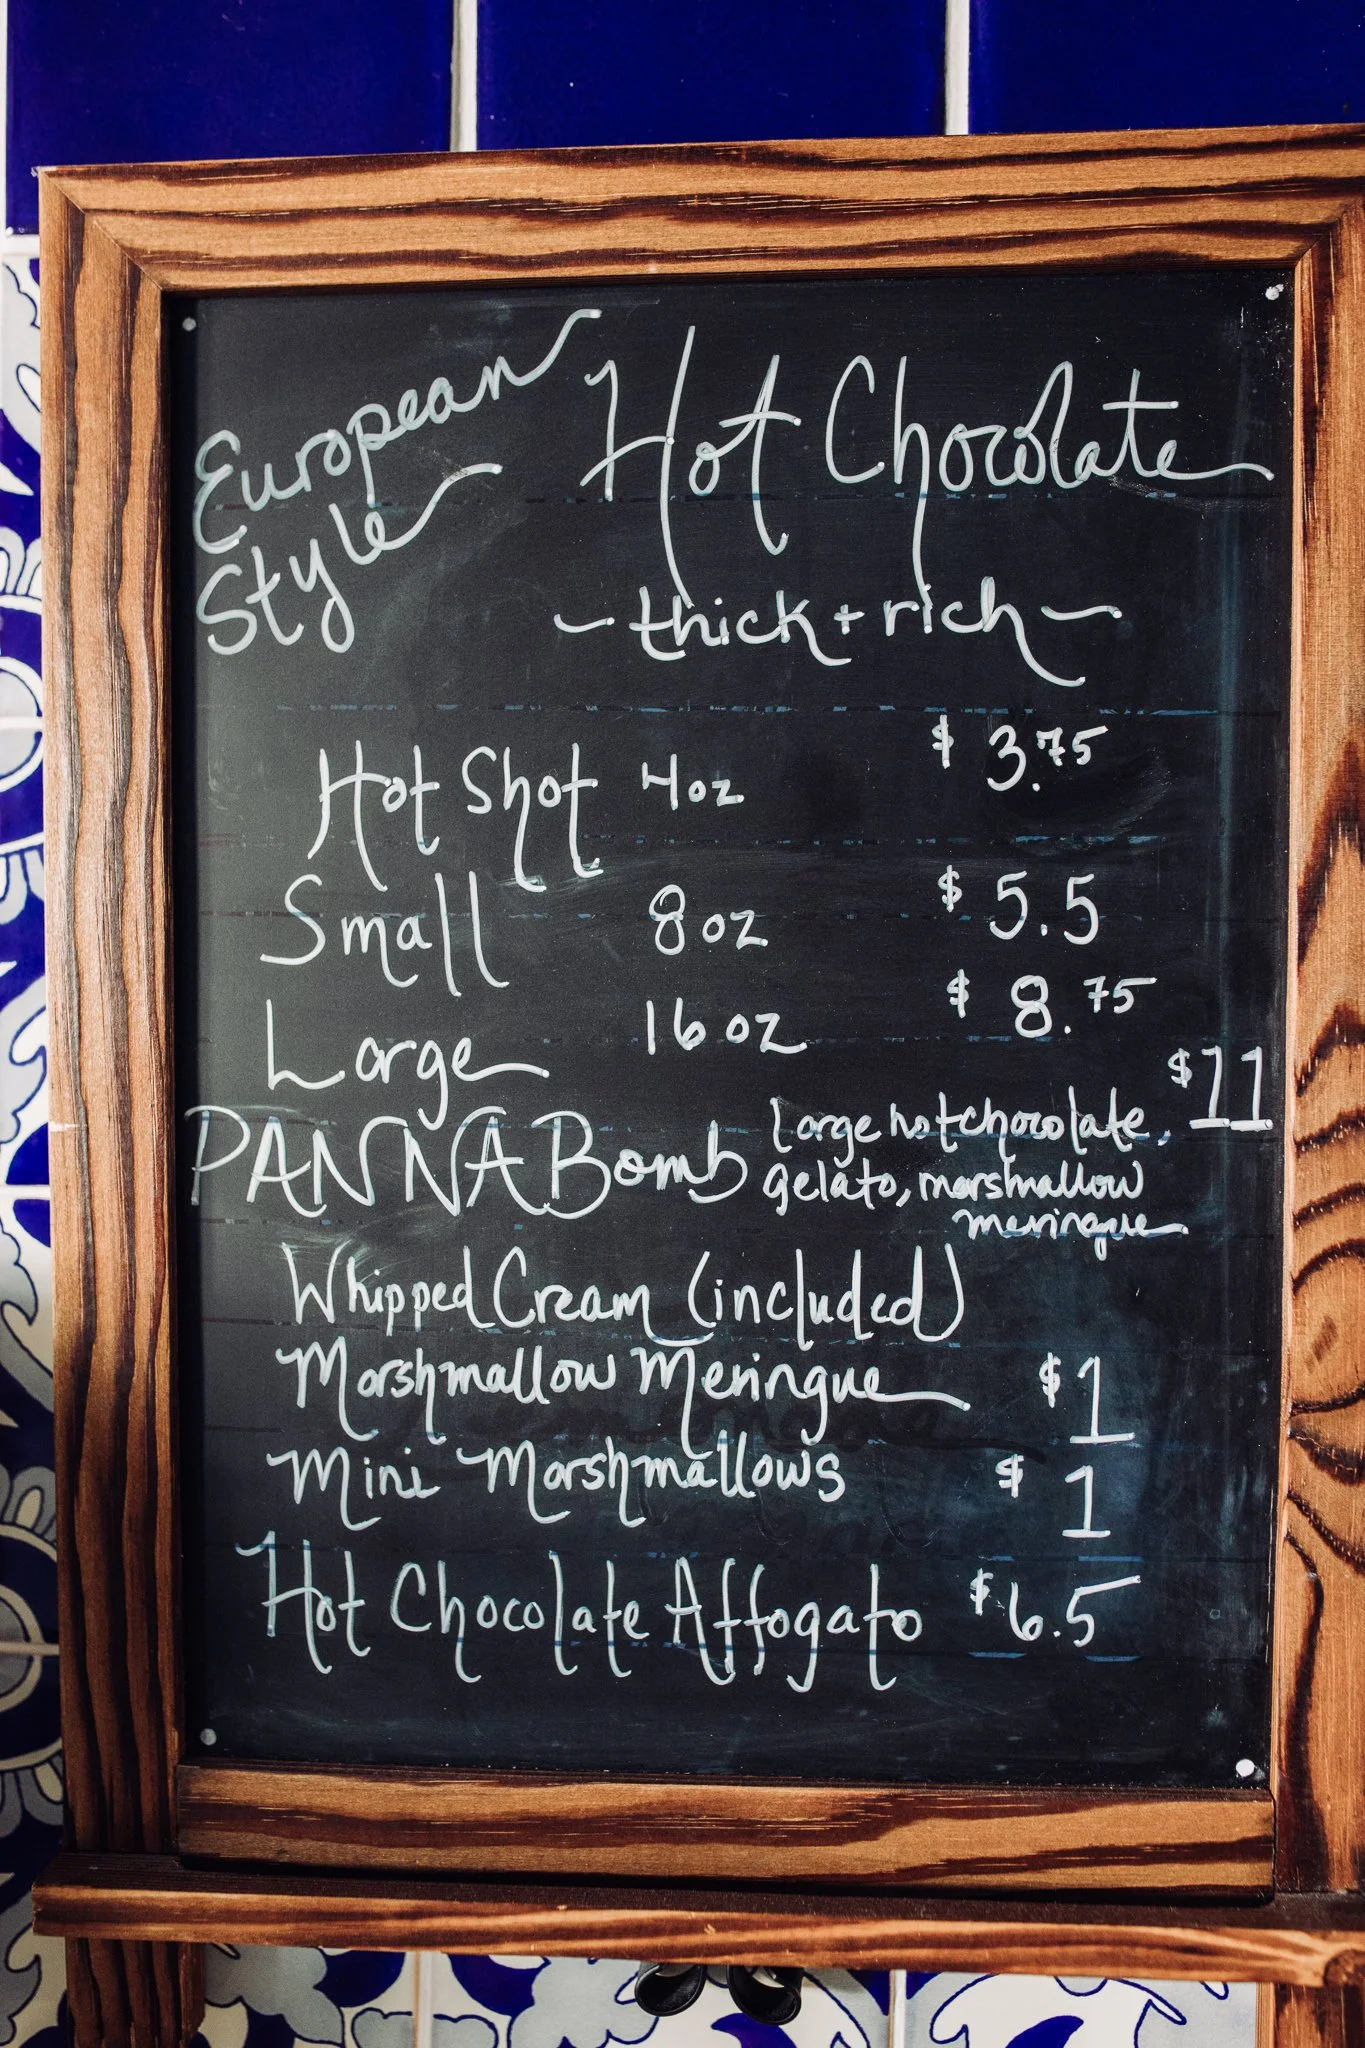 European
Style
Hot Chocolate
- thick + rich -
Hot Shot 4oz $ 3.75
Small 8oz $ 5.5
Large 16oz $ 8.75
PANNA Bomb large hot chocolate, $11
gelato, marshmallow
meringue
Whipped Cream (included)
Marshmallow Meringue $1
Mini Marshmallows $1
Hot Chocolate Affogato $6.5